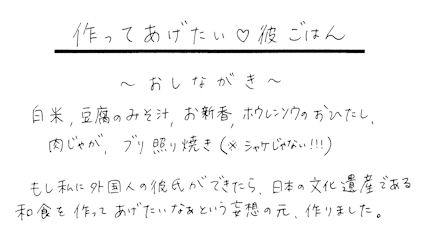 作ってあげたい♡彼ごはん
～おしながき～
白米、豆腐のみそ汁、お新香、ホウレンソウのおひたし、
肉じゃが、ブリ照り焼き(※シャケじゃない!!!)
もし私に外国人の彼氏ができたら、日本の文化遺産である
和食を作ってあげたいなぁという妄想の元、作りました。